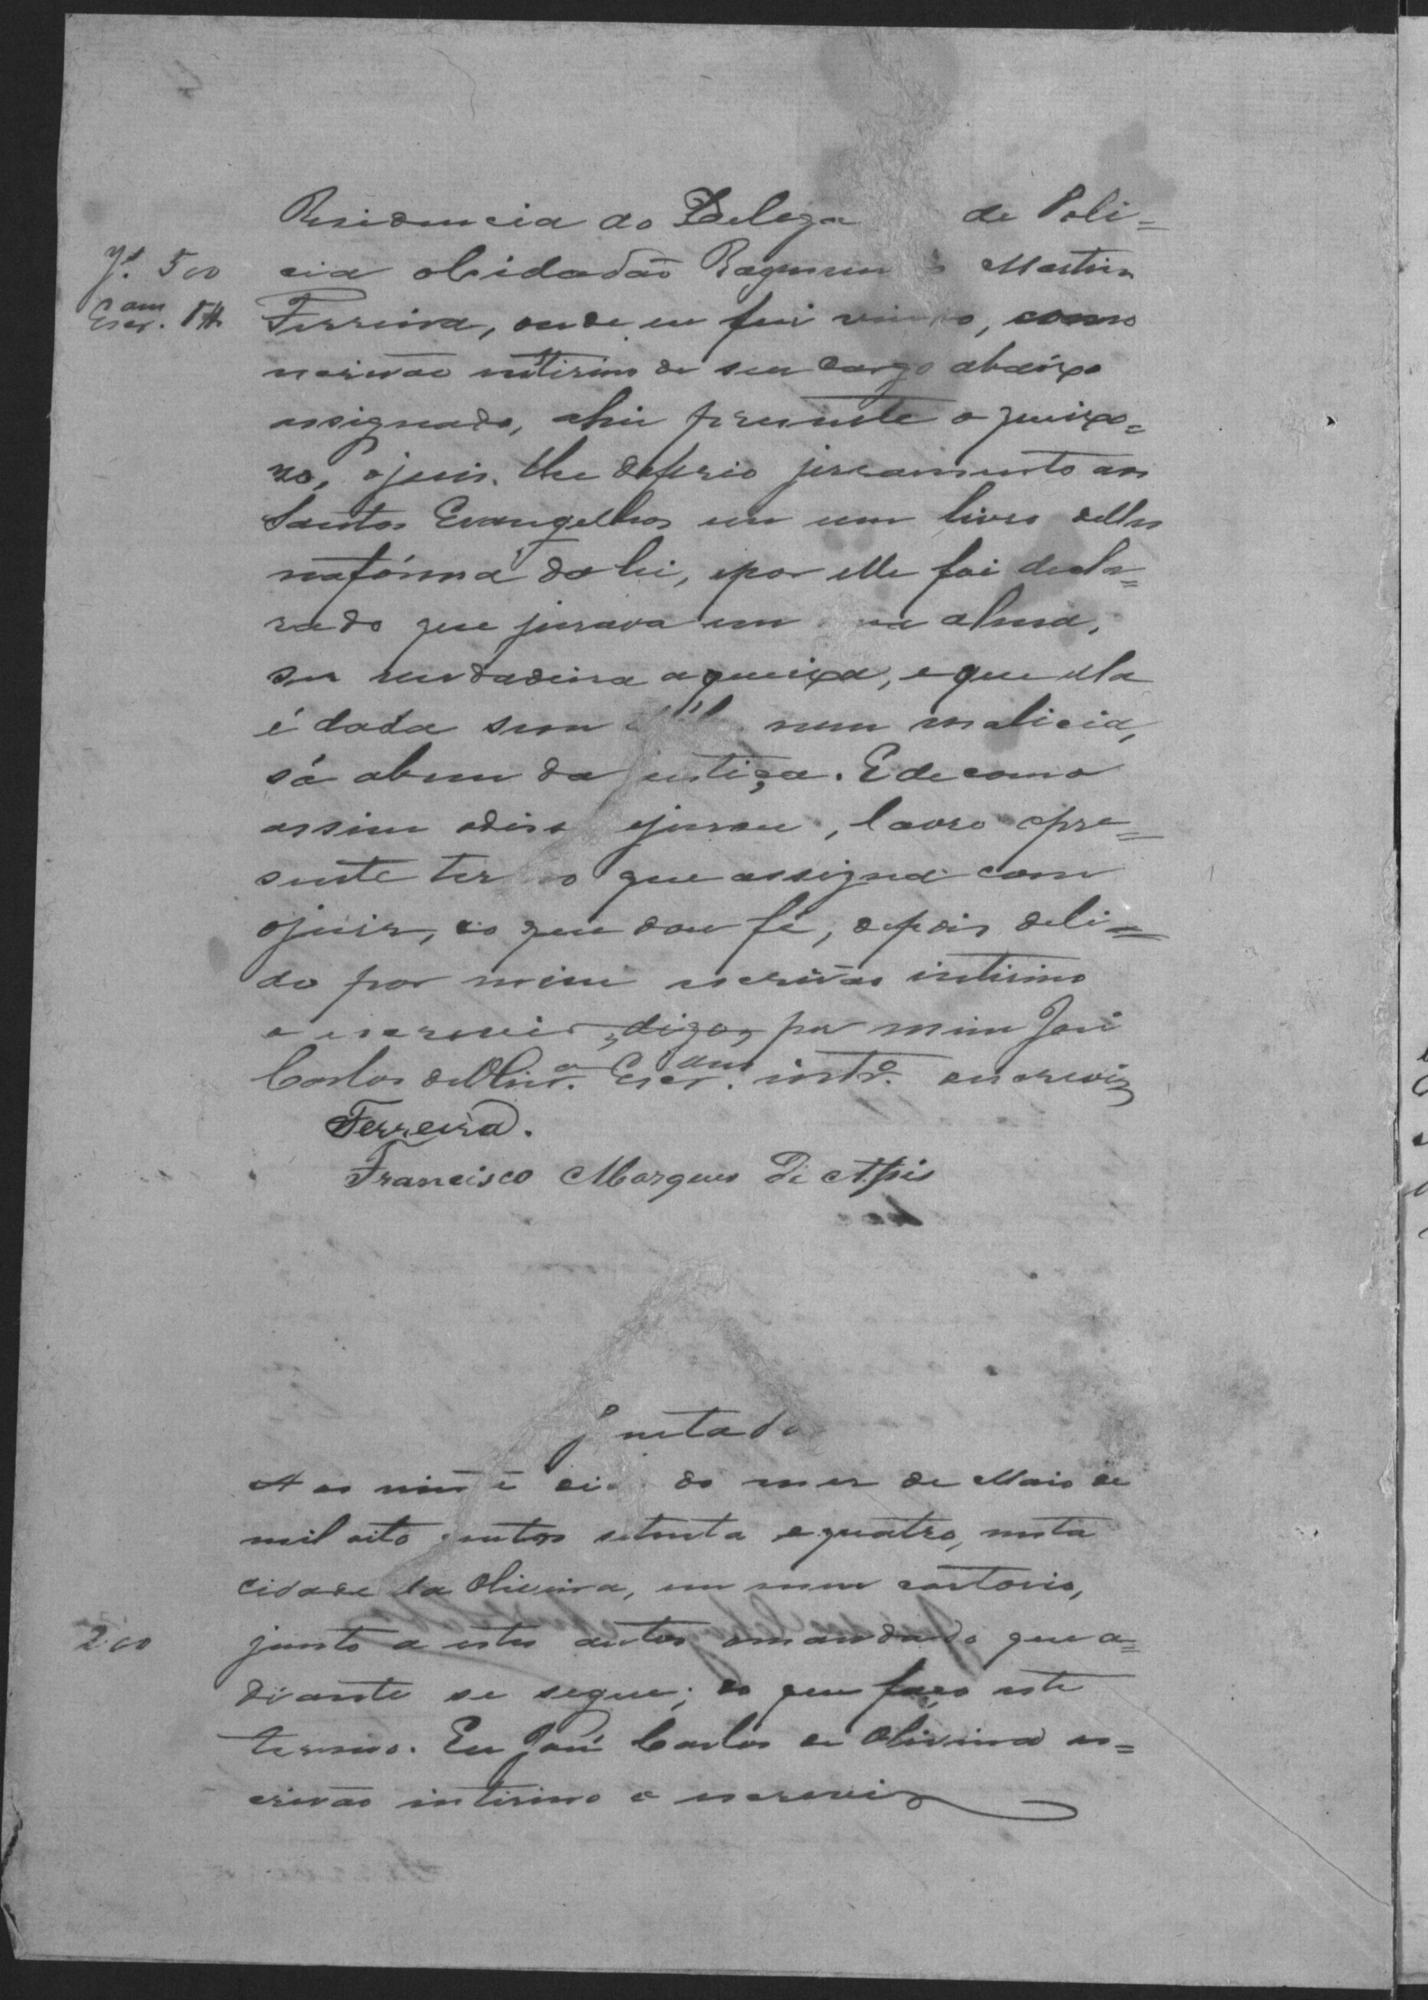 Residencia do Delega de Poli=
cia o Cidadão Raymun o Martins
Jº. 500
Escram. 1#
Ferreira, onde eu fui vindo, como
escrivão interino de seu cargo abaixo
assignado, ahi prezente o queixo=
zo, o juis lhe deferio juramento aos
Santos Evangelhos em um livro delles
na fórma da lei, e por elle foi decla=
rado que jurava em sua alma,
ser verdadeira a queixa, e que ella
é dada sem nem malicia,
só a bem da justiça. E de como
assim o disse e jurou, lavro o pre=
sente termo que assigna com
o juis, do que dou fé, depois de li=
do por mim escrivão interino
o escrevi, digo, por mim José
Carlos de Olivrª. Escram. intrº. escrevi
Ferreira.
Francisco Marques de Assis
Juntada
Aos dia do mes de Maio de
mil oito centos setenta e quatro, nesta
cidade da Oliveira, em meu cartorio,
200
junto a estes autos o mandado que a=
diante se segue; do que faço este
termo. Eu José Carlos de Oliveira es=
crivão interino o escrevi